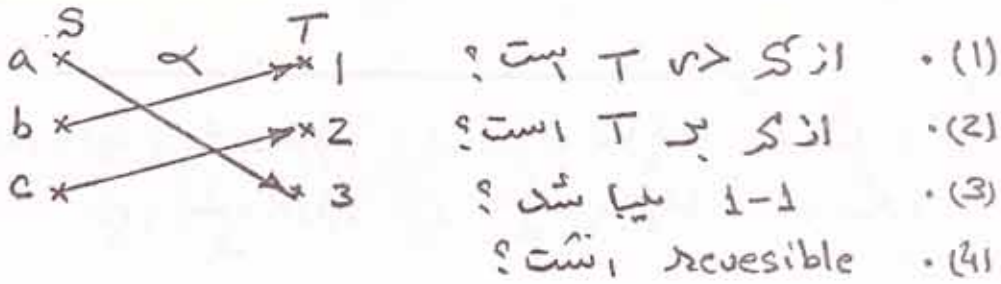 S T
a α 1
b 2
c 3
(1). از S در T است؟
(2). از S بر T است؟
(3). 1-1 میباشد؟
(4). revesible است؟